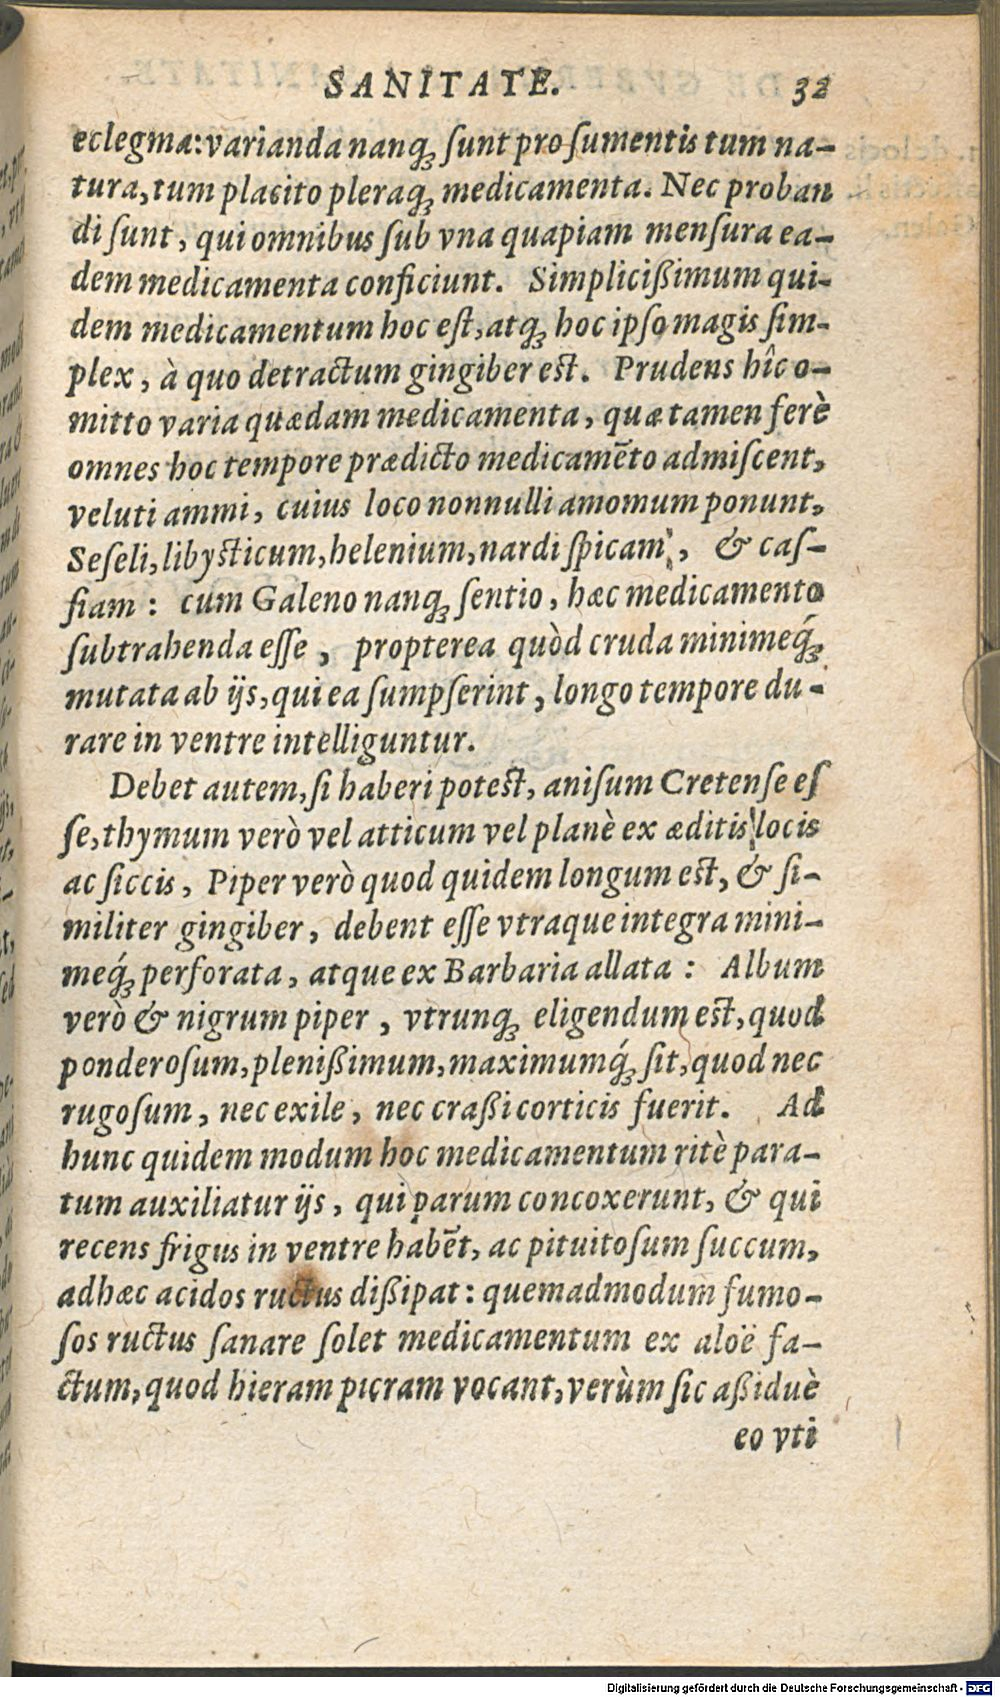 SANITATE. 32
eclegma: varianda nanq; ſunt pro ſumentis tum na-
tura, tum placito pleraq; medicamenta. Nec proban
di ſunt, qui omnibus ſub vna quapiam menſura ea-
dem medicamenta conficiunt. Simplicißimum qui-
dem medicamentum hoc eſt, atq; hoc ipſo magis ſim-
plex, à quo detractum gingiber eſt. Prudens hîc o-
mitto varia quædam medicamenta, quæ tamen ferè
omnes hoc tempore prædicto medicamẽto admiſcent,
veluti ammi, cuius loco nonnulli amomum ponunt,
Seſeli, libyſticum, helenium, nardi ſpicam, & caſ-
ſiam: cum Galeno nanq; ſentio, hæc medicamento
ſubtrahenda eſſe, propterea quòd cruda minimeq́;
mutata ab ijs, qui ea ſumpſerint, longo tempore du-
rare in ventre intelliguntur.
Debet autem, ſi haberi poteſt, aniſum Cretenſe eſ
ſe, thymum verò vel atticum vel planè ex æditis locis
ac ſiccis, Piper verò quod quidem longum eſt, & ſi-
militer gingiber, debent eſſe vtraque integra mini-
meq́; perforata, atque ex Barbaria allata: Album
verò & nigrum piper, vtrunq; eligendum eſt, quod
ponderoſum, plenißimum, maximumq́; ſit, quod nec
rugoſum, nec exile, nec craßi corticis fuerit. Ad
hunc quidem modum hoc medicamentum ritè para-
tum auxiliatur ijs, qui parum concoxerunt, & qui
recens frigus in ventre habẽt, ac pituitoſum ſuccum,
adhæc acidos ructus dißipat: quemadmodum fumo-
ſos ructus ſanare ſolet medicamentum ex aloë fa-
ctum, quod hieram picram vocant, verùm ſic aßiduè
eo vti
Digitalisierung gefördert durch die Deutsche Forschungsgemeinschaft - DFG